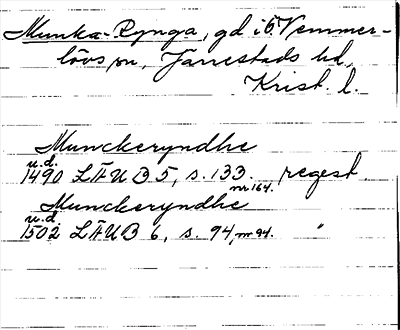 Munka-Rynga, gd i Ö. Vemmer-
lövs sn, Järrestads hd,
Krist. l.
Munckeryndhe
u.d.
1490 LÄUB 5, s. 133. regest.
nr 164.
Munckeryndhe
u.d.
1502 LÄUB 6, s. 94, nr 94. "